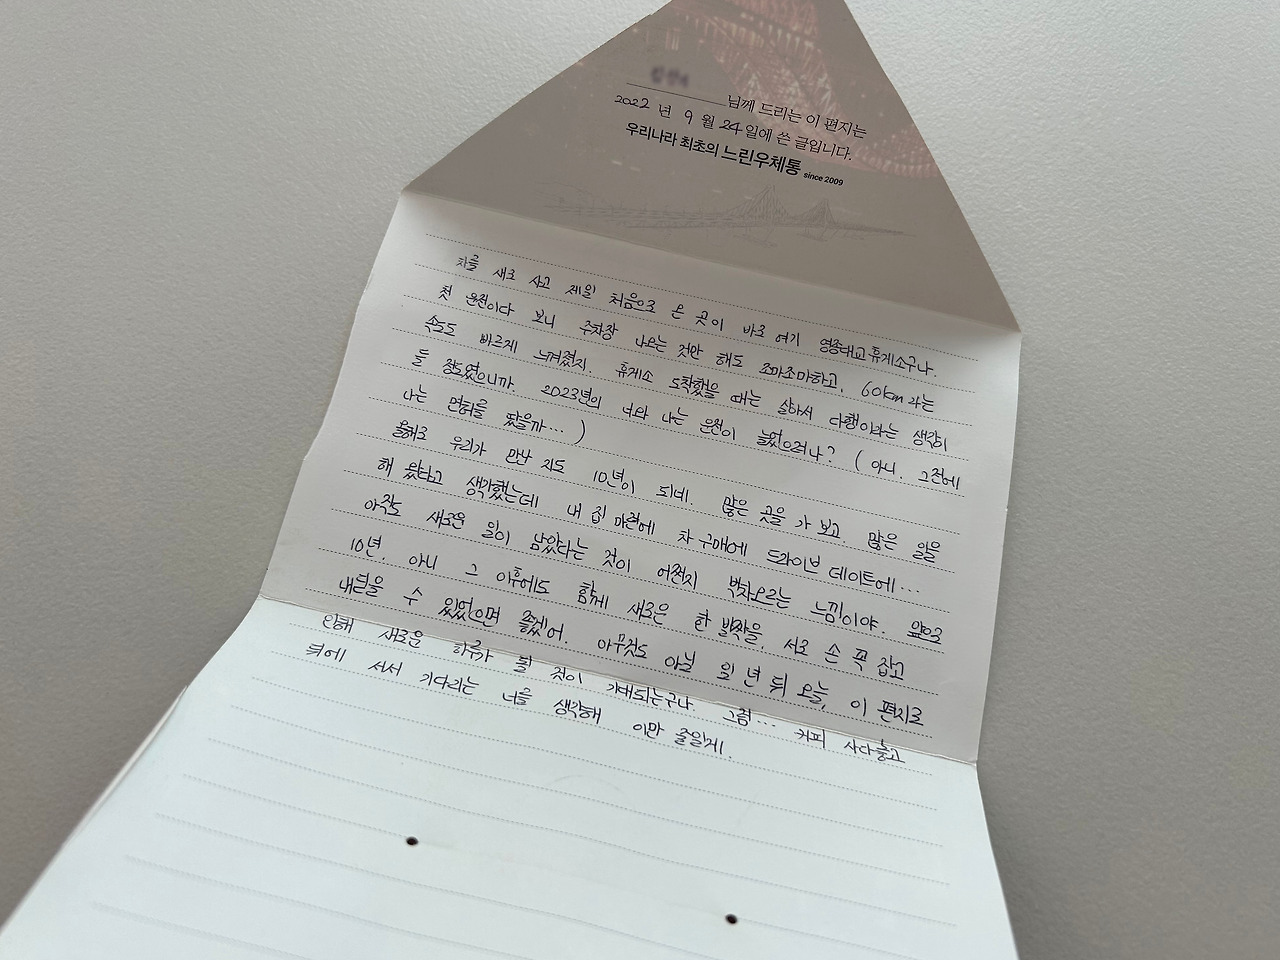 님께 드리는 이 편지는
2022 년 9 월 24 일에 쓴 글입니다.
우리나라 최초의 느린우체통 since 2009
차를 새로 사고 제일 처음으로 온 곳이 바로 여기 영종대교휴게소구나.
첫 운전이다 보니 주차장 나오는 것만 해도 조마조마하고, 60km라는
속도도 빠르게 느껴졌지. 휴게소 도착했을 때는 살아서 다행이라는 생각이
들 정도였으니까. 2023년의 너와 나는 운전이 늘었으려나? (아니. 그전에
나는 면허를 땄을까…)
올해로 우리가 만난 지도 10년이 되네. 많은 곳을 가 보고. 많은 일을
해 왔다고 생각했는데 내 집 마련에 차 구매에 드라이브 데이트에…
아직도 새로운 일이 남았다는 것이 어쩐지 벅차오르는 느낌이야. 앞으로
10년. 아니 그 이후에도 함께 새로운 한 발짝을, 서로 손 꼭 잡고
내딛을 수 있었으면 좋겠어. 아무것도 아닐 일 년 뒤 오늘, 이 편지로
인해 새로운 하루가 될 것이 기대되는구나. 그럼… 커피 사다놓고
뒤에 서서 기다리는 너를 생각해 이만 줄일게.